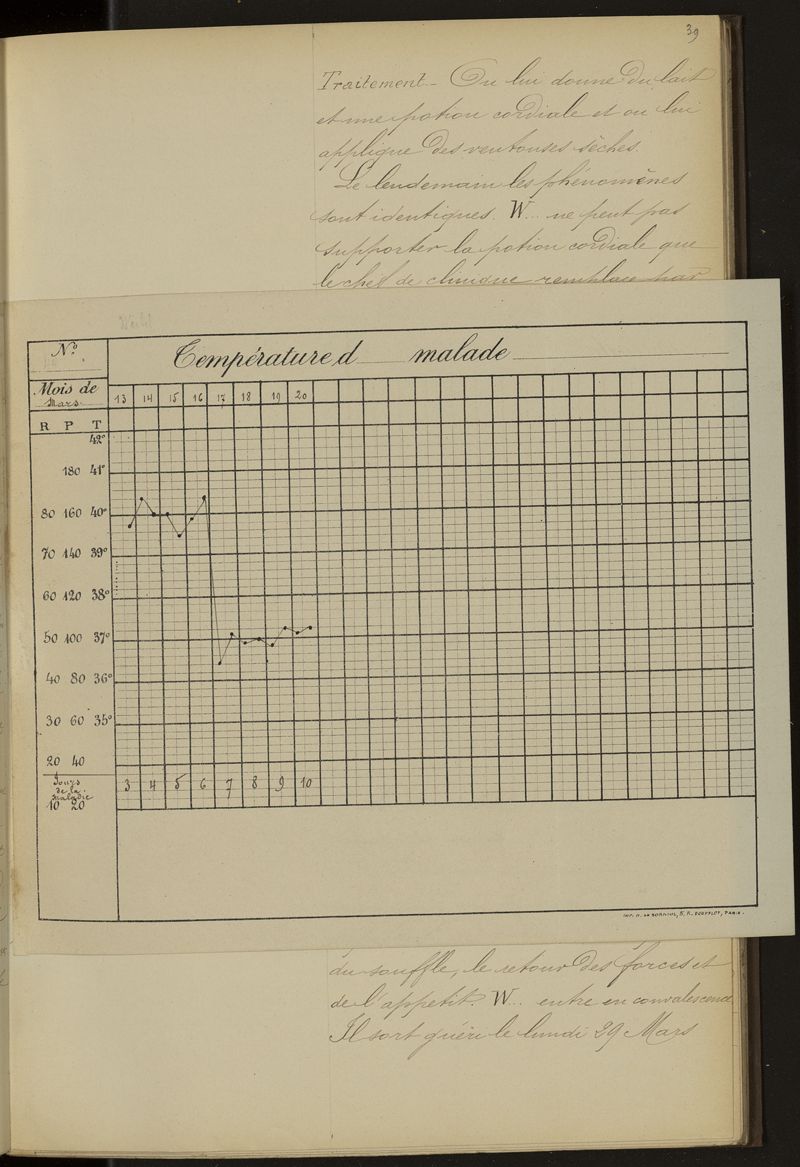 39
Traitement - On lui donne du lait
et une potion cordiale et on lui
applique des ventouses sèches.
Le lendemain les phénomènes
sont identiques. W... ne peut pas
supporter la potion cordiale que
le chef de clinique remplace par
No.
Température d malade
Mois de
Mars
13 14 15 16 17 18 19 20
R P T
42°
180 41°
80 160 40°
70 140 39°
60 120 38°
50 100 37°
40 80 36°
30 60 35°
20 40
Jours
de la
maladie
3 4 5 6 7 8 9 10
10 20
PARIS.
du souffle, le retour des forces et
de l'appétit. W... entre en convalescence
Il sort guéri le lundi 29 Mars